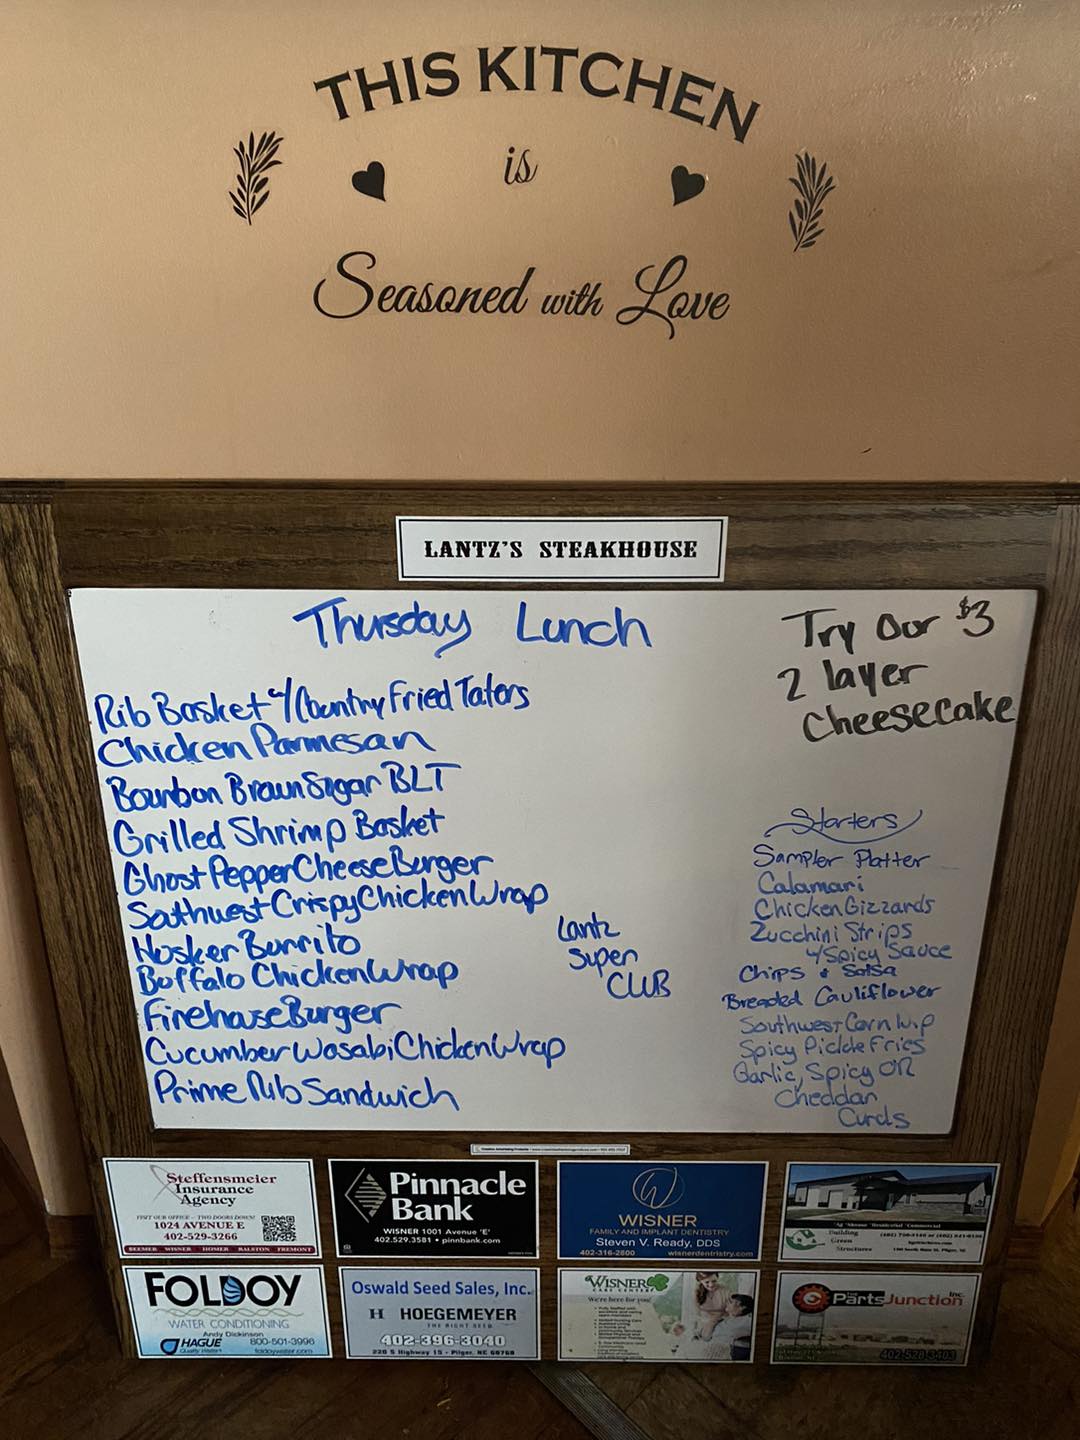 THIS KITCHEN
is
Seasoned with Love
LANTZ'S STEAKHOUSE
Thursday Lunch
Rib Basket w/Country Fried Taters
Chicken Parmesan
Bourbon Brown Sugar BLT
Grilled Shrimp Basket
Ghost Pepper Cheese Burger
Southwest Crispy Chicken Wrap
Husker Burrito
Buffalo Chicken Wrap
Firehouse Burger
Cucumber Wasabi Chicken Wrap
Prime Rib Sandwich
Lantz
Super
CLUB
Try Our $3
2 layer
Cheesecake
Starters
Sampler Platter
Calamari
Chicken Gizzards
Zucchini Strips
w/Spicy Sauce
Chips & Salsa
Breaded Cauliflower
Southwest Corn
Spicy Pickle Fries
Garlic, Spicy OR
Cheddar
Curds
Steffensmeier
Insurance
Agency
VISIT OUR OFFICE - TWO DOORS DOWN!
1024 AVENUE E
402-529-3266
BEEMER WISNER HOMER RALSTON FREMONT
Pinnacle
Bank
WISNER 1001 Avenue 'E'
402.529.3581 • pinnbank.com
WISNER
FAMILY AND IMPLANT DENTISTRY
Steven V. Ready, DDS
402-316-2800 wisnerdentistry.com
Building
Green
Structures
FOLDOY
WATER CONDITIONING
Andy Dickinson
HAGUE 800-501-3996
Quality Water foldoywater.com
Oswald Seed Sales, Inc.
H HOEGEMEYER
THE RIGHT SEED
402-396-3040
220 S Highway 15 - Pilger, NE 68768
WISNER
CARE CENTER
We're here for you!
Parts Junction Inc.